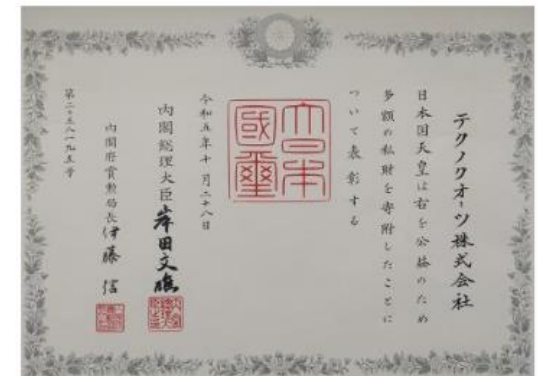 テクノクオーツ株式会社
日本国天皇は右を公益のため
多額の私財を寄附したことに
ついて表彰する
大日本
國璽
令和五年十月二十八日
内閣総理大臣 岸田文雄
内閣府賞勲局長 伊藤 信